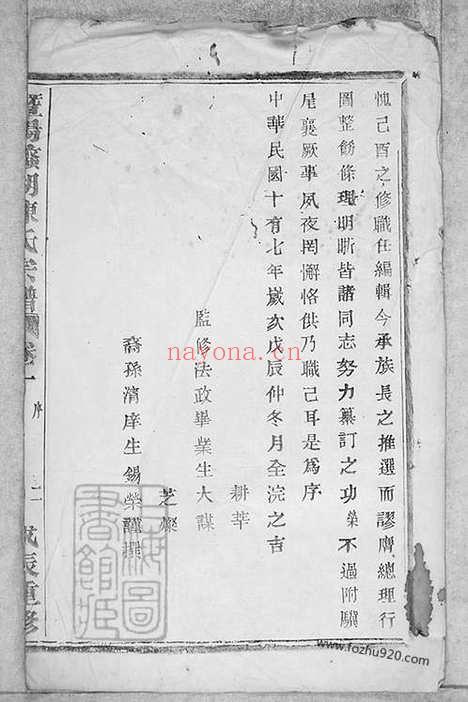 愧己酉之修職任編輯今承族長之推選而謬膺總理行
圖整飭條理明晰皆諸同志努力纂訂之功榮不過附驥
尾襄厥事夙夜罔懈恪供乃職己耳是為序
中華民國十有七年歲次戊辰仲冬月全浣之吉
耕莘
監修法政畢業生大謀
芝燦
裔孫清庠生錫榮謹撰
暨陽 湖陳氏宗譜 卷一 序 二 戊辰重修
上海圖書館
nayona.cn
www.fozhu920.com